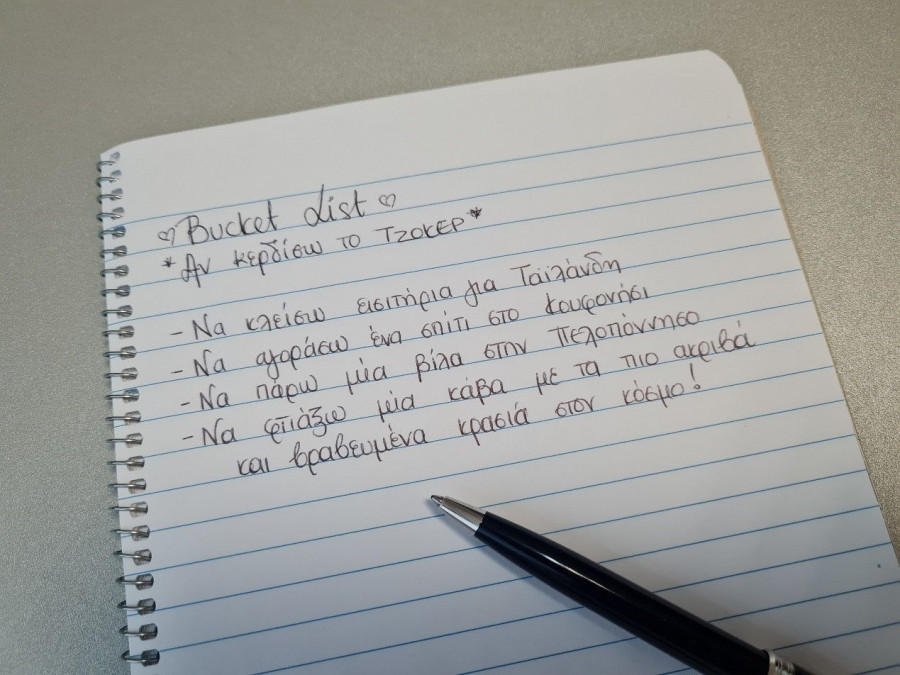 ♡ Bucket List ♡
*Αν κερδίσω το ΤΖΟΚΕΡ*
- Να κλείσω εισιτήρια για Ταϊλάνδη
- Να αγοράσω ένα σπίτι στο Κουφονήσι
- Να πάρω μία βίλα στην Πελοπόννησο
- Να φτιάξω μία κάβα με τα πιο ακριβά
και βραβευμένα κρασιά στον κόσμο!